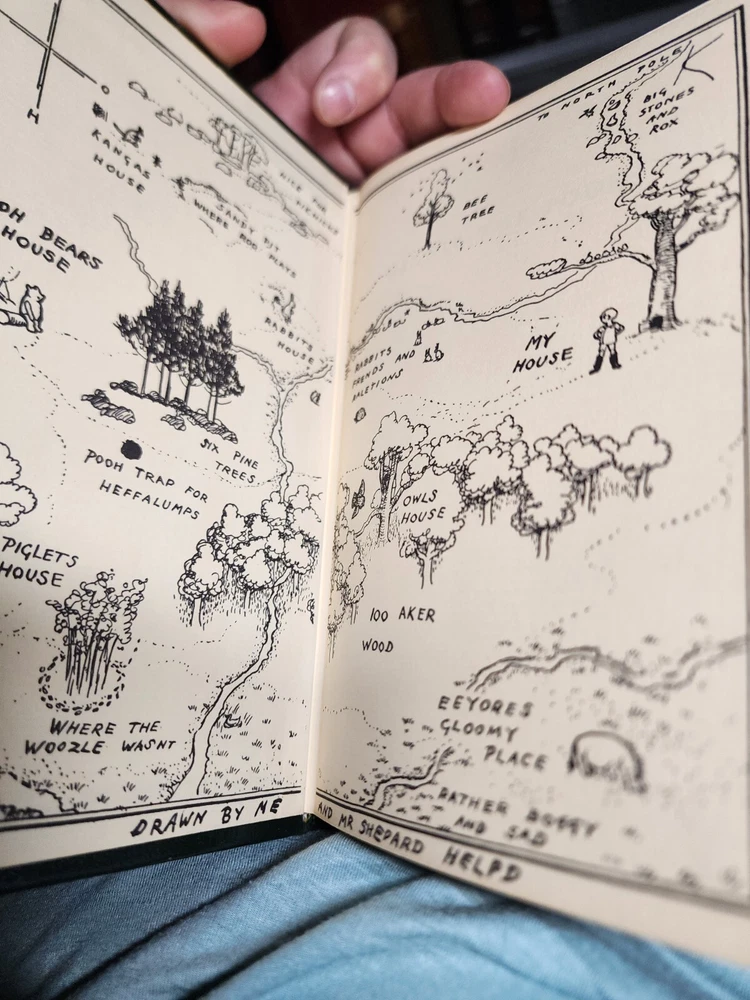 O
H
KANGAS
HOUSE
NICE FOR
PICNICKS
SANDY PIT
WHERE ROO PLAYS
OH BEARS
HOUSE
RABBITS
HOUSE
SIX PINE
TREES
POOH TRAP FOR
HEFFALUMPS
PIGLETS
HOUSE
WHERE THE
WOOZLE WASNT
DRAWN BY ME
TO NORTH POLE
BIG
STONES
AND
ROX
BEE
TREE
RABBITS
FRENDS AND
RALETIONS
MY
HOUSE
OWLS
HOUSE
100 AKER
WOOD
EEYORES
GLOOMY
PLACE
RATHER BOGGY
AND SAD
AND MR SHEPARD HELPD